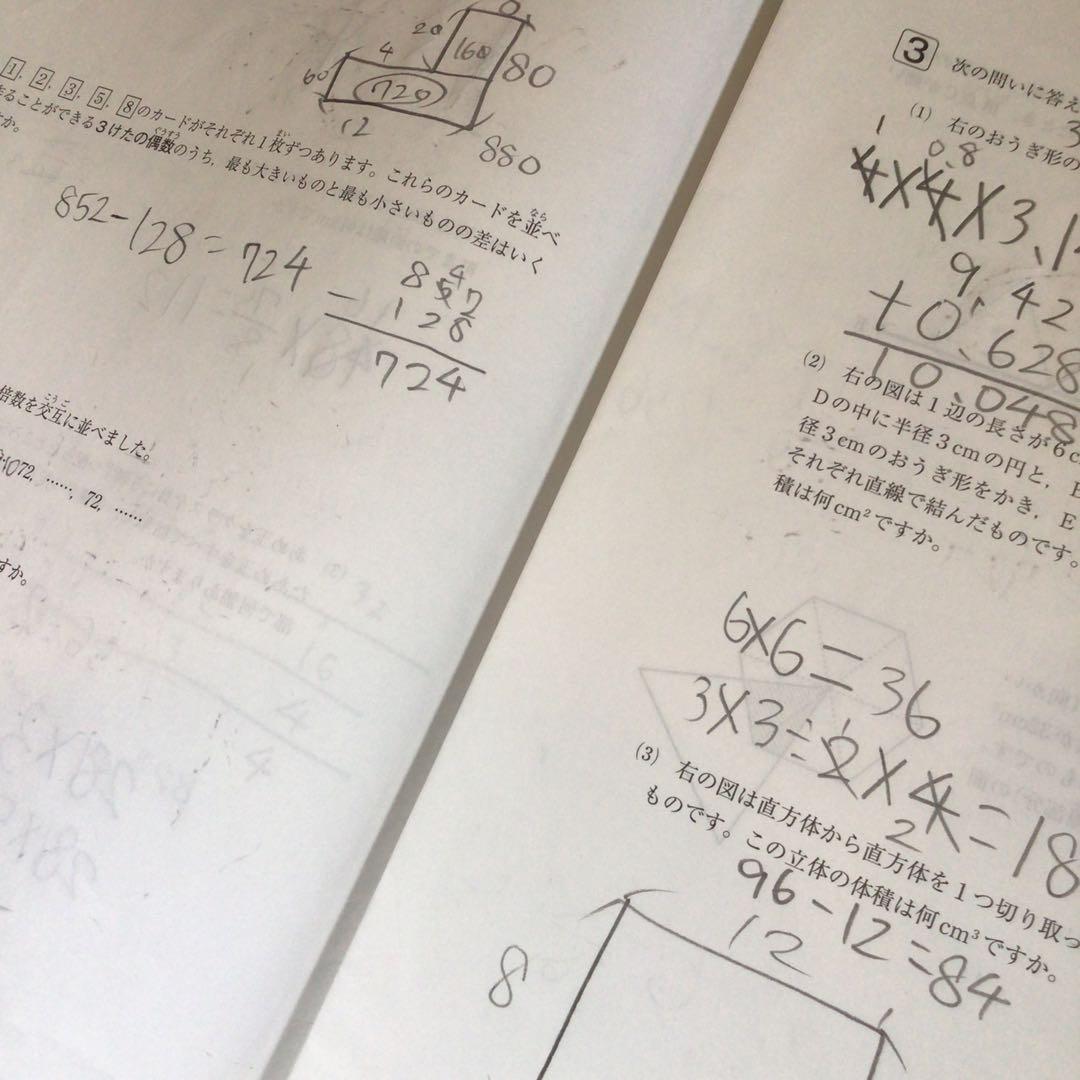 20
160
80
4
60
720
12
880
1, 2, 3, 5, 8のカードがそれぞれ1枚ずつあります。これらのカードを並べ
ることができる3けたの偶数のうち、最も大きいものと最も小さいものの差はいく
すか。
852-128=724
4
852
- 128
724
倍数を交互に並べました。
072, ……, 72, ……
すか。
3 次の問いに答え
(1) 右のおうぎ形の
1
0.8
4×4×3.1
9.42
+0.628
10.048
(2) 右の図は1辺の長さが6c
Dの中に半径3cmの円と、E
径3cmのおうぎ形をかき、E
それぞれ直線で結んだものです。
積は何cm²ですか。
6×6=36
3×3÷2×4=18
1
2
(3) 右の図は直方体から直方体を1つ切り取っ
ものです。この立体の体積は何cm³ですか。
96-12=84
12
8